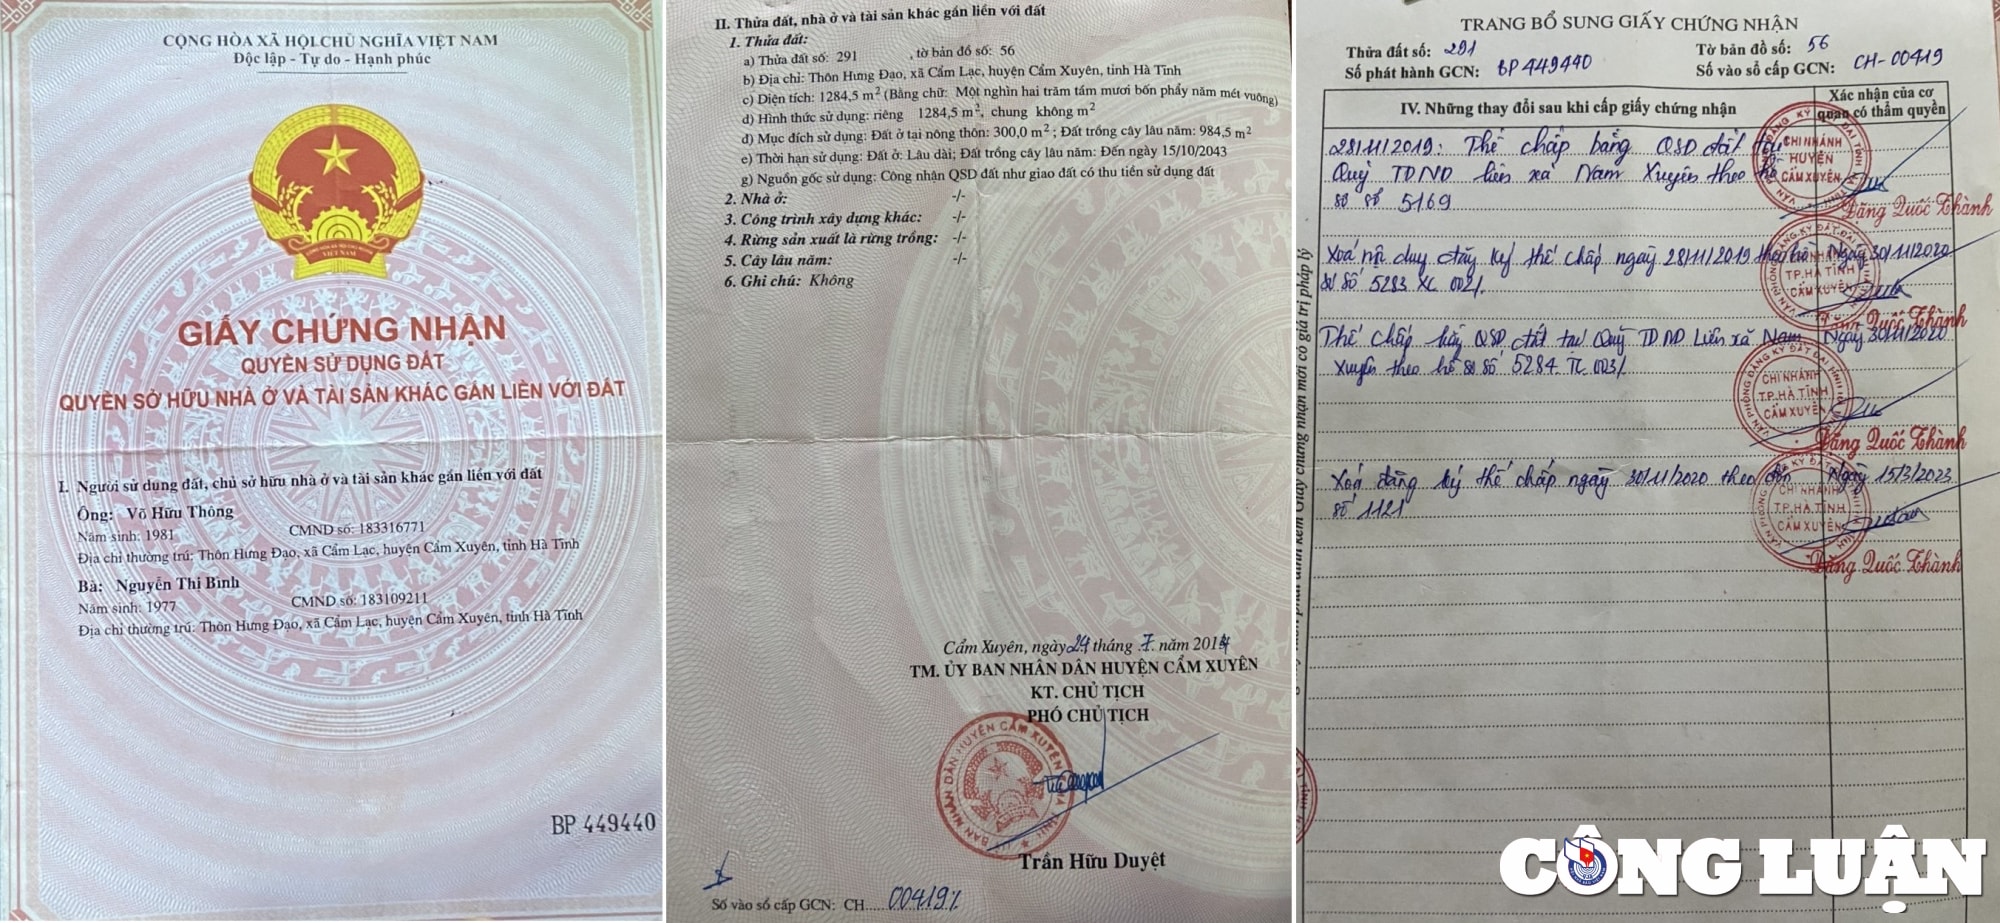 CỘNG HÒA XÃ HỘI CHỦ NGHĨA VIỆT NAM
Độc lập - Tự do - Hạnh phúc
GIẤY CHỨNG NHẬN
QUYỀN SỬ DỤNG ĐẤT
QUYỀN SỞ HỮU NHÀ Ở VÀ TÀI SẢN KHÁC GẮN LIỀN VỚI ĐẤT
I. Người sử dụng đất, chủ sở hữu nhà ở và tài sản khác gắn liền với đất
Ông: Võ Hữu Thông
Năm sinh: 1981 CMND số: 183316771
Địa chỉ thường trú: Thôn Hưng Đạo, xã Cẩm Lạc, huyện Cẩm Xuyên, tỉnh Hà Tĩnh
Bà: Nguyễn Thị Bình
Năm sinh: 1977 CMND số: 183109211
Địa chỉ thường trú: Thôn Hưng Đạo, xã Cẩm Lạc, huyện Cẩm Xuyên, tỉnh Hà Tĩnh
BP 449440
II. Thửa đất, nhà ở và tài sản khác gắn liền với đất
1. Thửa đất:
a) Thửa đất số: 291 , tờ bản đồ số: 56
b) Địa chỉ: Thôn Hưng Đạo, xã Cẩm Lạc, huyện Cẩm Xuyên, tỉnh Hà Tĩnh
c) Diện tích: 1284,5 m² (Bằng chữ: Một nghìn hai trăm tám mươi bốn phẩy năm mét vuông)
d) Hình thức sử dụng: riêng 1284,5 m², chung không m²
đ) Mục đích sử dụng: Đất ở tại nông thôn: 300,0 m² ; Đất trồng cây lâu năm: 984,5 m²
e) Thời hạn sử dụng: Đất ở: Lâu dài; Đất trồng cây lâu năm: Đến ngày 15/10/2043
g) Nguồn gốc sử dụng: Công nhận QSD đất như giao đất có thu tiền sử dụng đất
2. Nhà ở: -/-
3. Công trình xây dựng khác: -/-
4. Rừng sản xuất là rừng trồng: -/-
5. Cây lâu năm: -/-
6. Ghi chú: Không
Cẩm Xuyên, ngày 24 tháng 7. năm 2014
TM. ỦY BAN NHÂN DÂN HUYỆN CẨM XUYÊN
KT. CHỦ TỊCH
PHÓ CHỦ TỊCH
Trần Hữu Duyệt
Số vào sổ cấp GCN: CH.....00419
TRANG BỔ SUNG GIẤY CHỨNG NHẬN
Thửa đất số: 291 Tờ bản đồ số: 56
Số phát hành GCN: BP 449440 Số vào sổ cấp GCN: CH-00419
IV. Những thay đổi sau khi cấp giấy chứng nhận
Xác nhận của cơ quan có thẩm quyền
28/11/2019: Thế chấp bằng QSD đất tại
Quỹ TDND liên xã Nam Xuyên theo hồ
sơ số 5169
CHI NHÁNH
HUYỆN
CẨM XUYÊN
Đặng Quốc Thành
Xoá nội dung đăng ký thế chấp ngày 28/11/2019 theo hồ Ngày 30/11/2020
sơ số 5283 XC 002
TP.HÀ TĨNH
CẨM XUYÊN
Quốc Thành
Thế chấp bằng QSD đất tại Quỹ TDND Liên xã Nam Ngày 30/11/2020
Xuyên theo hồ sơ số 5284. TC 003
CHI NHÁNH
T.P.HÀ TĨNH
CẨM XUYÊN
Đặng Quốc Thành
Xoá đăng ký thế chấp ngày 30/11/2020 theo đơn Ngày 15/3/2023
số 1121
CHI NHÁNH
T.P.HÀ TĨNH
CẨM XUYÊN
Đặng Quốc Thành
CÔNG LUẬN